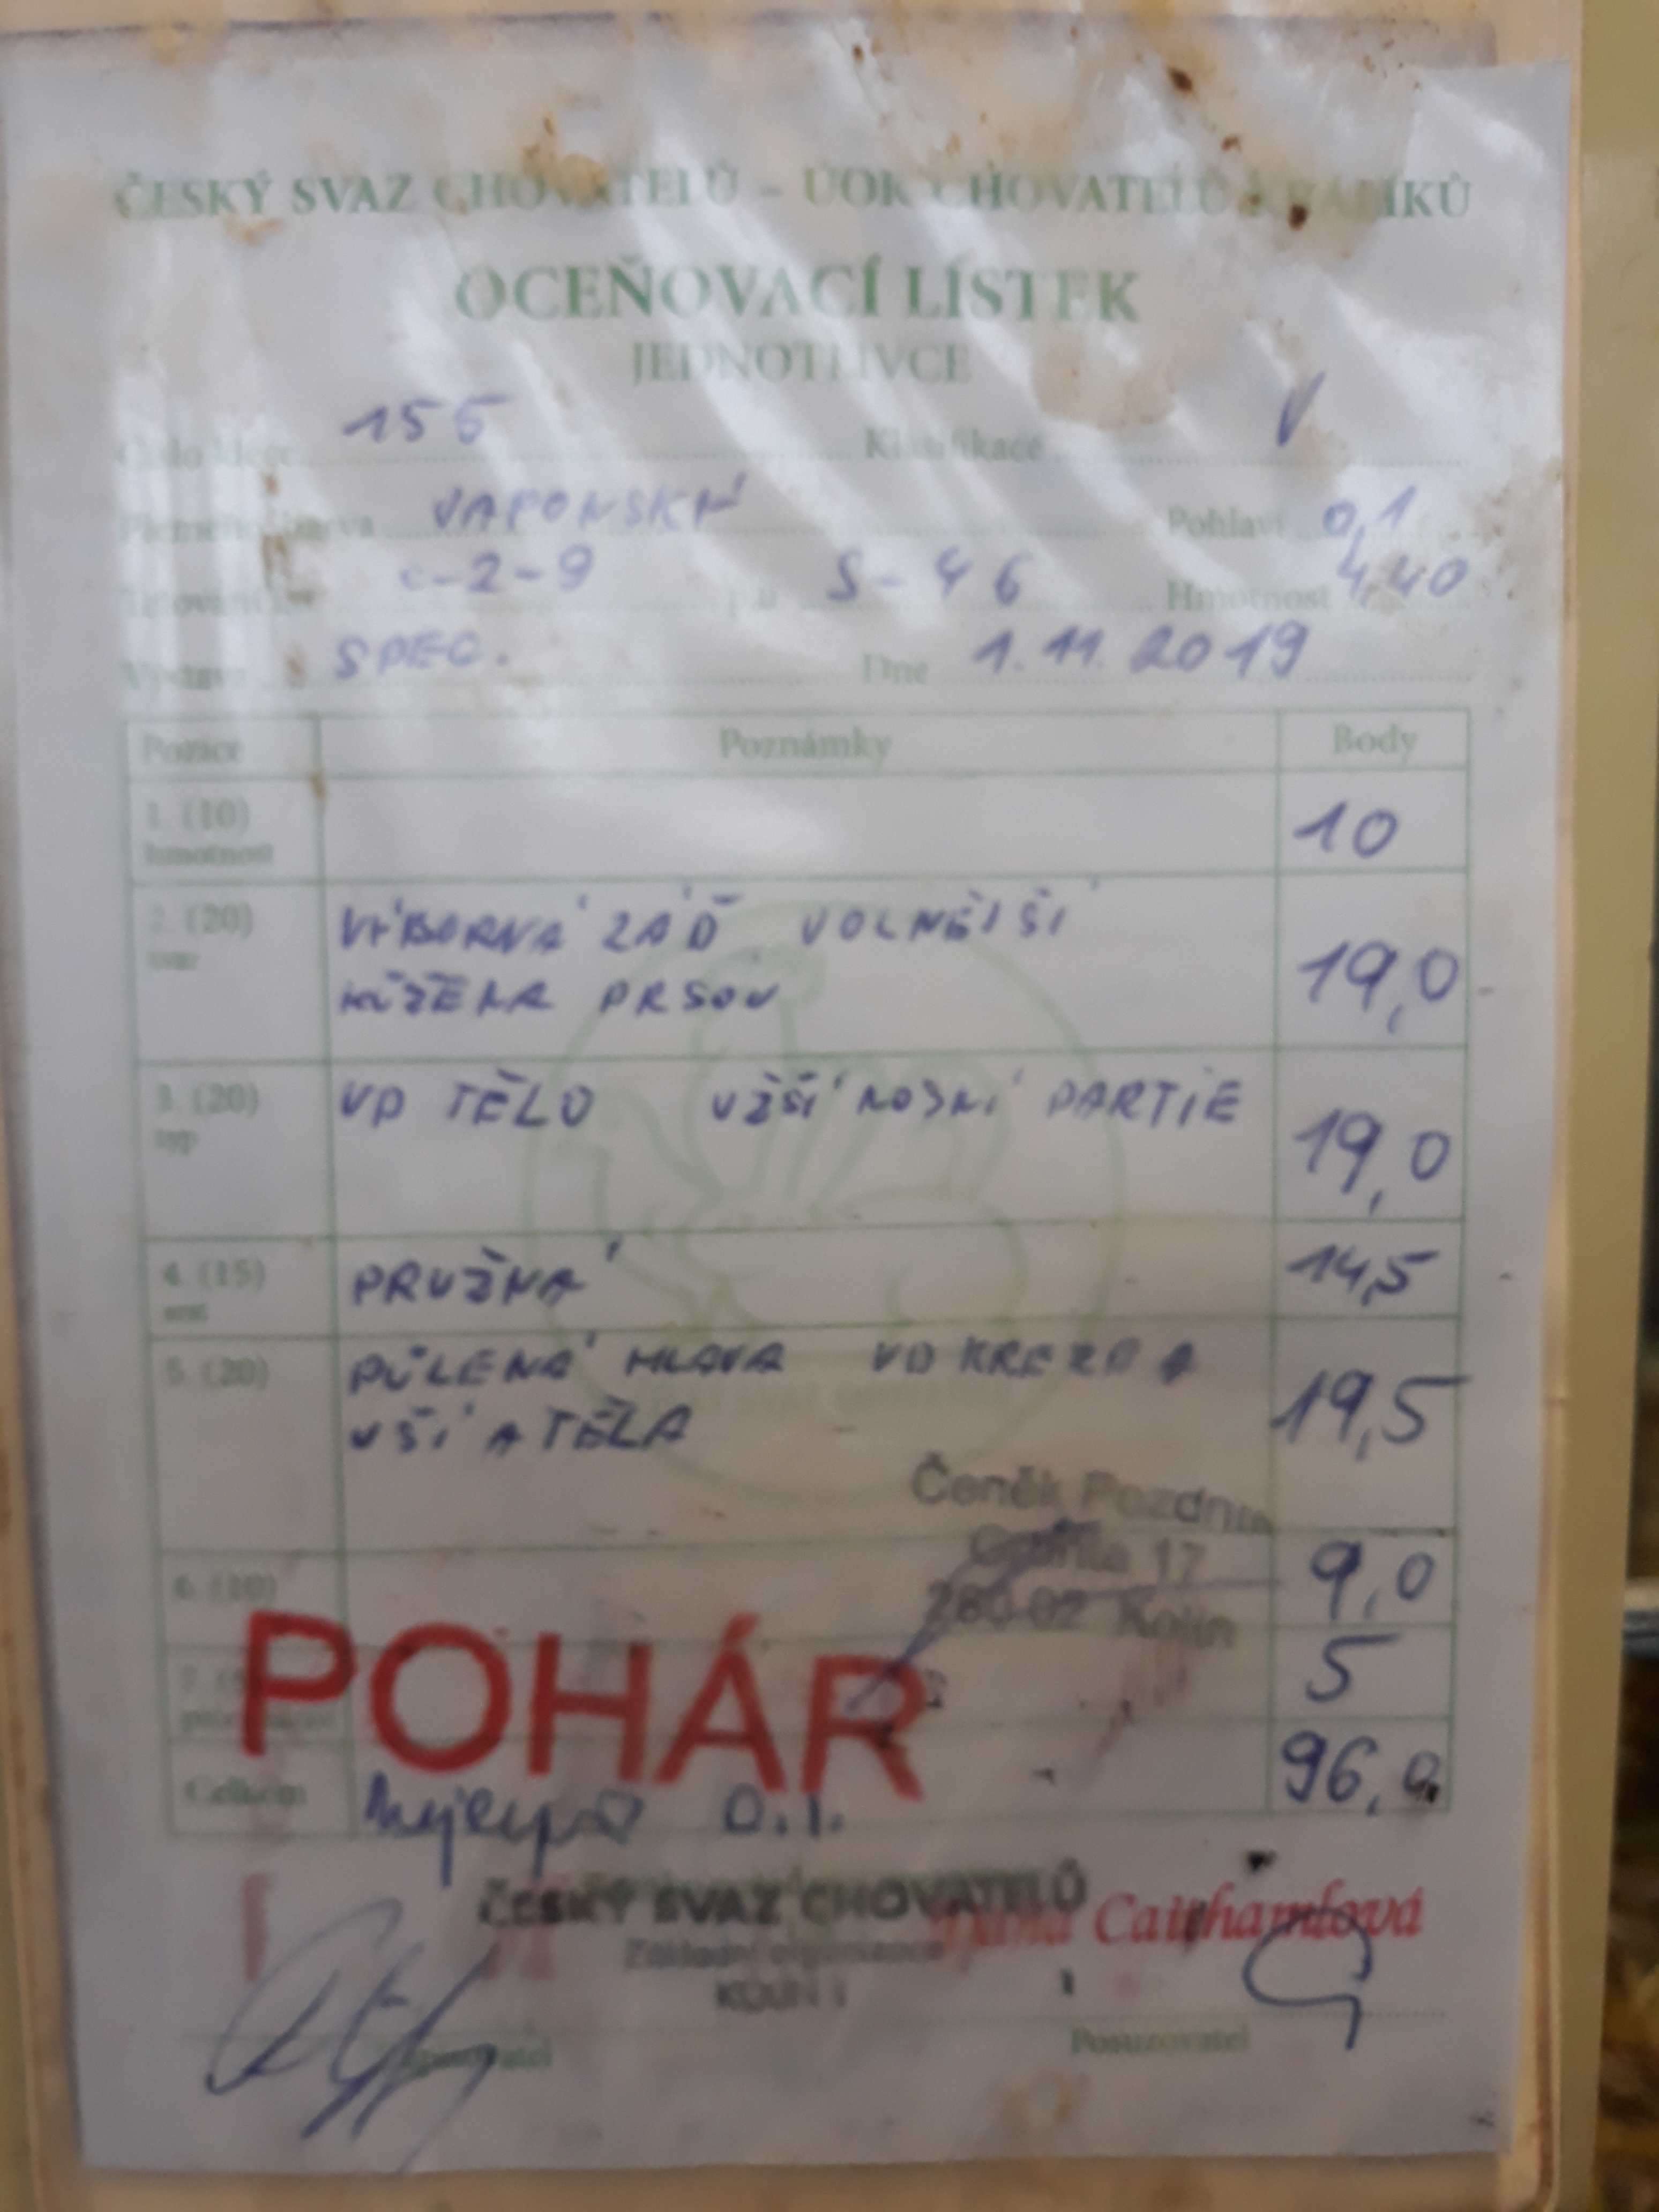 ČESKÝ SVAZ CHOVATELŮ – ÚOK CHOVATELŮ KRÁLÍKŮ
OCEŇOVACÍ LÍSTEK
JEDNOTLIVCE
Číslo klece 155 Klasifikace V
Plemeno, barva JAPONSKÝ Pohlaví 0,1
Tetování -2-9 S-46 Hmotnost 4,40
Výstava SPEC. Dne 1.11.2019
Pozice Poznámky Body
1. (10) hmotnost 10
2. (20) tvar VÝBORNÁ ZÁĎ VOLNĚJŠÍ
KŮŽE NA PRSOU 19,0
3. (20) typ VD TĚLO UŽŠÍ NOSNÍ PARTIE 19,0
4. (15) srst PRUŽNÁ 14,5
5. (20) PŮLENÁ HLAVA VD KRESBA
UŠÍ A TĚLA 19,5
Čeněk Pozdní
17
280 02 Kolín
6. (10) 9,0
7. 5
POHÁR
Celkem Nejlepší 0.1. 96,0
ČESKÝ SVAZ CHOVATELŮ
Základní organizace
KOLÍN 1
Posuzovatel